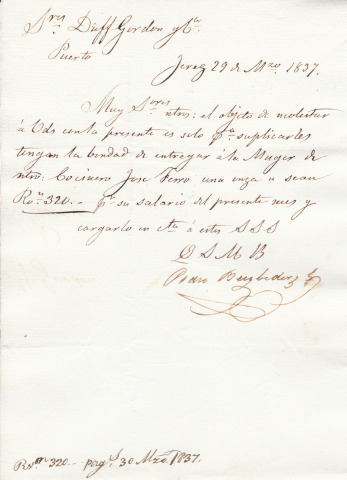 Sres Duff Gordon y Ca
Puerto
Jerez 29 de Mzo 1837.
Muy Sores
ntros: el objeto de molestar
á Vds con la presente es solo pa suplicarles
tengan la bondad de entregar á la Muger de
ntro: Cocinero Jose Ferro una onza u sean
Ron 320.- pr su salario del presente mes y
cargarlo en Cta á este S S S
Q S M B
Pedro
Rs.on 320.- pags 30 Mzo 1837.